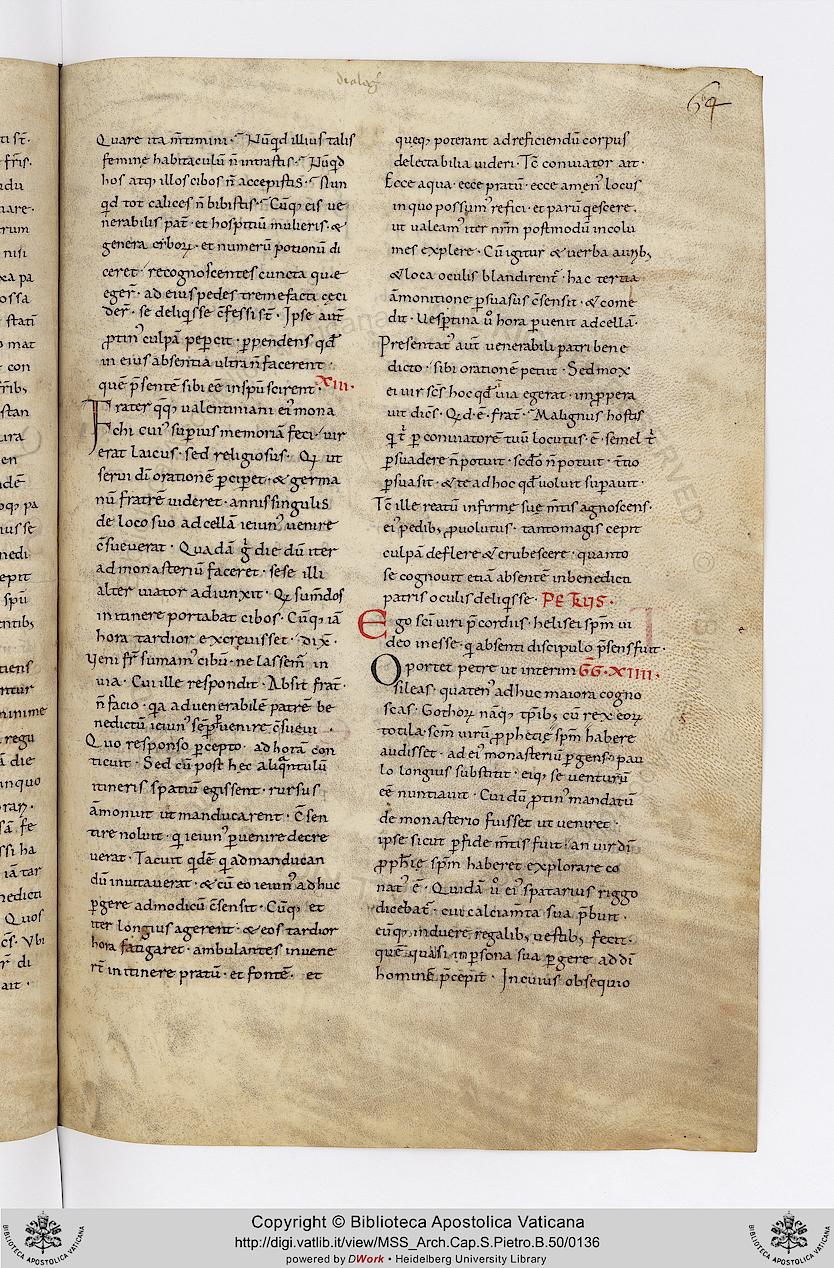 dialog̃
64
Quare ita m̃timini · Nũqd illius talis
femine habitaculũ ñ intrastis · Nũqd
hos atq; illos cibos ñ accepistis · Nun
qd tot calices ñ bibistis · Cũq; eis ue
nerabilis pat̃ · et hospitiũ mulieris · &
genera ciboꝝ · et numerũ potionũ di
ceret · recognoscentes cuncta que
eger̃ · ad eius pedes tremefacti ceci
der̃ · se deliq̃sse c̃fessi st̃ · Ipse aut̃
ꝓtin᾽ culpã peꝑcit · ꝑpendens qđ
in eius absentia ultra ñ facerent ·
quẽ p̃sentẽ sibi eẽ in sp̃u scirent · XIII ·
Frater q̃q; ualentiniani ei᾽ mona
chi cui᾽ suꝑius memoriã feci · uir
erat laicus · sed religiosus · Qꝫ ut
serui di orationẽ ꝑciꝑet · & germa
nũ fratrẽ uideret · annis singulis
de loco suo ad cellã ieiun᾽ uenire
c̃sueuerat · Quadã g̃ die dũ iter
ad monasteriũ faceret · sese illi
alter uiator adiunxit · Qꝫ sum̃dos
in itinere portabat cibos · Cũq; iã
hora tardior excreuisset · dix̃ ·
Veni fr̃ sumam᾽ cibũ · ne lassem᾽ in
uia · Cui ille respondit · Absit frat̃ ·
ñ facio · q̃a ad uenerabilẽ patrẽ be
nedictũ ieiun᾽ sẽp ꝑuenire c̃sueui ·
Quo responso ꝑcepto · ad horã con
ticuit · Sed cũ post hec aliq̃ntulũ
itineris spatiũ egissent · rursus
ãmonuit ut manducarent · C̃sen
tire noluit · q ieiun᾽ ꝑuenire decre
uerat · Tacuit qdẽ q ad manducan
dũ inuitauerat · & cũ eo ieiun᾽ adhuc
ꝑgere ad modicũ c̃sensit · Cũq; et
iter longius agerent · & eos tardior
hora fatigaret · ambulantes inuene
rt̃ in itinere pratũ · et fontẽ · et
queq; poterant ad reficiendũ corpus
delectabilia uideri · Tc̃ conuiator ait ·
Ecce aqua · ecce pratũ · ecce amen᾽ locus
in quo possum᾽ refici · et parũ q̃escere ·
ut ualeam᾽ iter nr̃m postmodũ incolu
mes explere · Cũ igitur & uerba aurib;
& loca oculis blandirent̃ · hac tertia
ãmonitione ꝑsuasus c̃sensit · & come
dit · Uesꝑtina u᾽ hora ꝑuenit ad cellã ·
Presentat᾽ aut̃ uenerabili patri bene
dicto · sibi orationẽ petiit · Sed mox
ei uir sc̃s hoc qđ ĩ uia egerat · inꝓpera
uit dic̃s · Qđ · ẽ · frat̃ · Malignus hostis
q t̃ ꝑ conuiatorẽ tuũ locutus · ẽ · semel t̃
ꝑsuadere ñ potuit · scđo ñ potuit · t̃tio
ꝑsuasit · & te ad hoc qđ uoluit suꝑauit ·
Tc̃ ille reatũ infirme sue m̃tis agnoscens ·
ei᾽ pedib; ꝓuolutus · tanto magis cepit
culpã deflere & erubescere · quanto
se cognouit etiã absentẽ in benedicti
patris oculis deliq̃sse · PETRUS ·
Ego sc̃i uiri p̃cordiis · helisei sp̃m ui
deo inesse · q absenti discipulo p̃sens fuit ·
Oportet petre ut interim G̃G · XIIII ·
sileas · quaten᾽ adhuc maiora cogno
scas · Gothoꝝ nãq; t̃pib; cũ rex eoꝝ
totila · sc̃m uirũ ꝓphetie sp̃m habere
audisset · ad ei᾽ monasteriũ ꝑgens · pau
lo longius substitit · eiq; se uenturũ
eẽ nuntiauit · Cui dũ ꝓtin᾽ mandatũ
de monasterio fuisset ut ueniret ·
ipse sicut ꝑfide m̃tis fuit · an uir di
ꝓph̃ie sp̃m haberet explorare co
nat᾽ ẽ · Quidã u᾽ ei᾽ spatarius riggo
dicebat̃ · cui calciam̃ta sua p̃buit ·
eũq; induere regalib; uestib; fecit ·
quẽ quasi in ꝑsona sua ꝑgere ad di
hominẽ p̃cepit · In cuius obsequio
Copyright © Biblioteca Apostolica Vaticana
http://digi.vatlib.it/view/MSS_Arch.Cap.S.Pietro.B.50/0136
powered by DWork • Heidelberg University Library